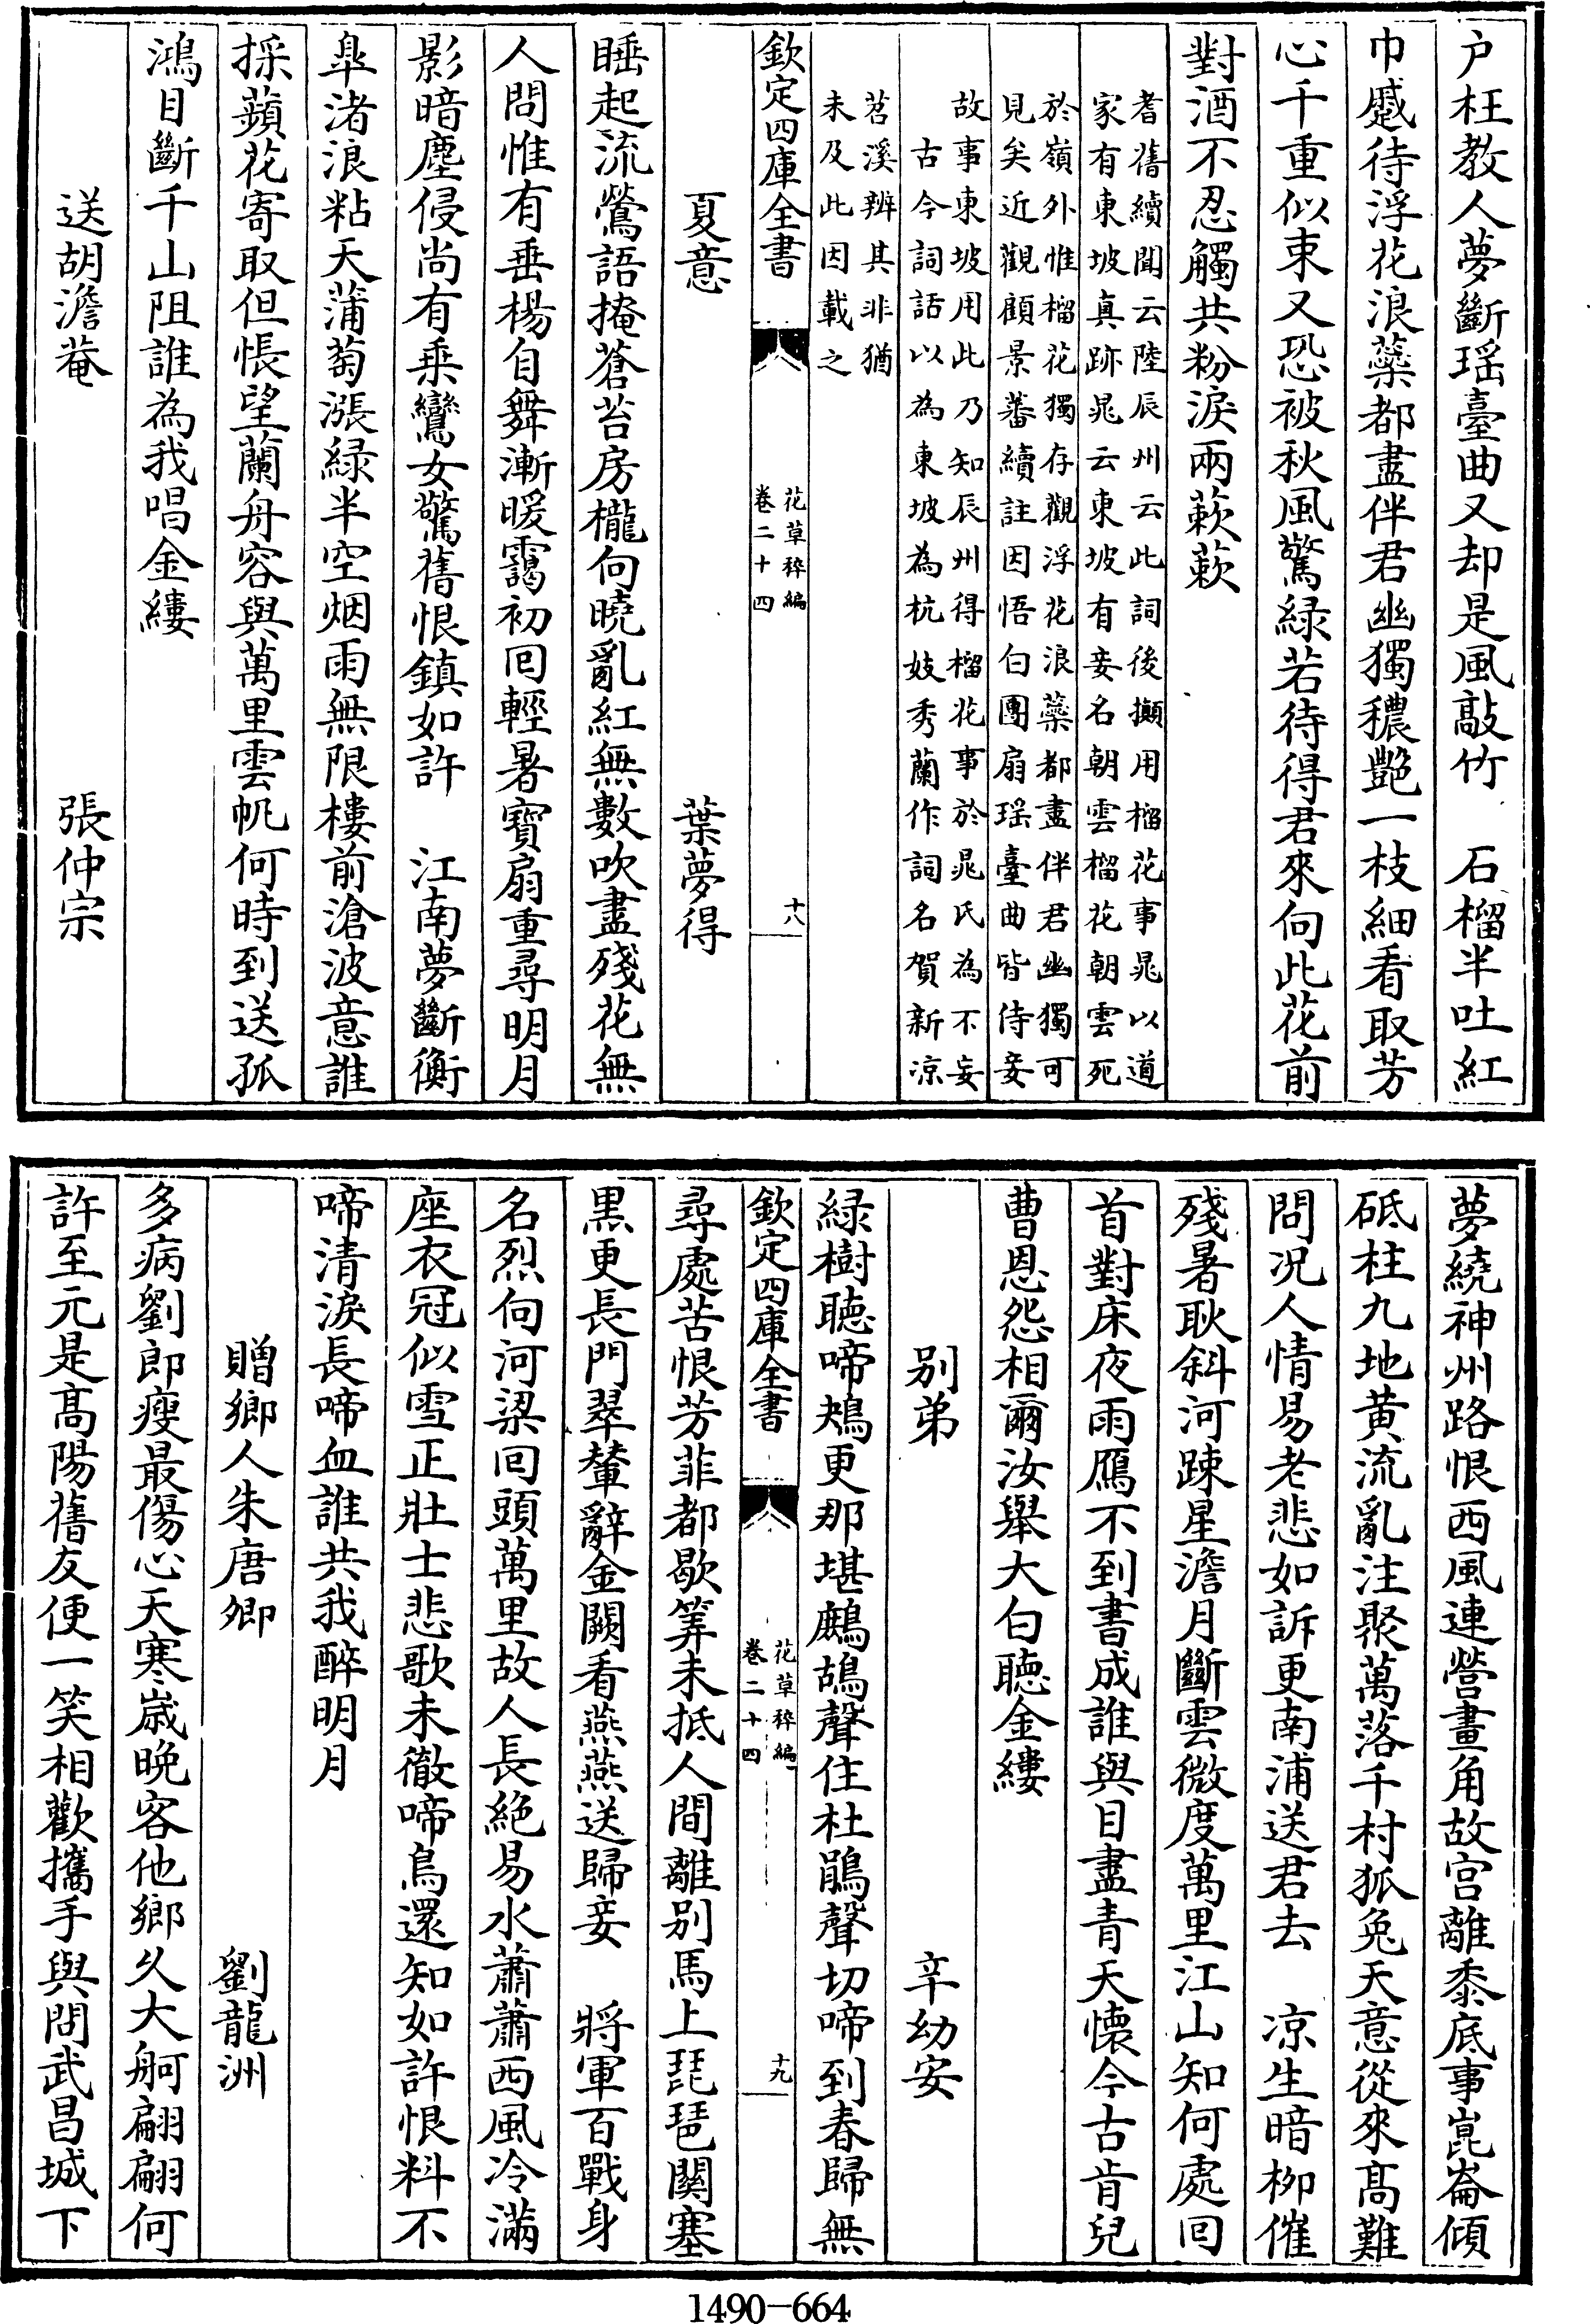 户枉教人夢斷瑶臺曲又却是風敲竹　石榴半吐紅
巾蹙待浮花浪蘂都盡伴君幽獨穠艷一枝細看取芳
心千重似束又恐被秋風驚緑若待得君來向此花前
對酒不忍觸共粉淚兩蔌蔌
耆舊續聞云陸辰州云此詞後擷用榴花事晁以道
家有東坡真跡晁云東坡有妾名朝雲榴花朝雲死
於嶺外惟榴花獨存觀浮花浪蘂都盡伴君幽獨可
見矣近觀顧景蕃續註因悟白團扇瑶臺曲皆侍妾
故事東坡用此乃知辰州得榴花事於晁氏為不妄
古今詞話以為東坡為杭妓秀蘭作詞名賀新凉
苕溪辨其非猶
未及此因載之
欽定四庫全書
花草稡編
卷二十四
十八
夏意　葉夢得
睡起流鶯語掩蒼苔房櫳向曉亂紅無數吹盡殘花無
人問惟有垂楊自舞漸暖靄初囘輕暑寶扇重尋明月
影暗塵侵尚有乗鸞女驚舊恨鎮如許　江南夢斷衡
臯渚浪粘天蒲萄漲緑半空烟雨無限樓前滄波意誰
採蘋花寄取但悵望蘭舟容與萬里雲帆何時到送孤
鴻目斷千山阻誰為我唱金縷
送胡澹菴　張仲宗
夢繞神州路恨西風連營畫角故宫離黍底事崑崙傾
砥柱九地黄流亂注聚萬落千村狐兔天意從來髙難
問况人情易老悲如訴更南浦送君去　凉生暗柳催
殘暑耿斜河踈星澹月斷雲微度萬里江山知何處囘
首對床夜雨鴈不到書成誰與目盡青天懷今古肯兒
曹恩怨相爾汝舉大白聽金縷
别弟　辛幼安
緑樹聽啼鴂更那堪鷓鴣聲住杜鵑聲切啼到春歸無
欽定四庫全書
花草稡編
卷二十四
十九
尋處苦恨芳菲都歇筭未抵人間離别馬上琵琶闗塞
黒更長門翠輦辭金闕看燕燕送歸妾　將軍百戰身
名烈向河梁囘頭萬里故人長絶易水蕭蕭西風冷滿
座衣冠似雪正壯士悲歌未徹啼鳥還知如許恨料不
啼清淚長啼血誰共我醉明月
贈鄉人朱唐卿　劉龍洲
多病劉郎瘦最傷心天寒嵗晚客他鄉乆大舸翩翩何
許至元是髙陽舊友便一笑相歡攜手與問武昌城下
1490—664